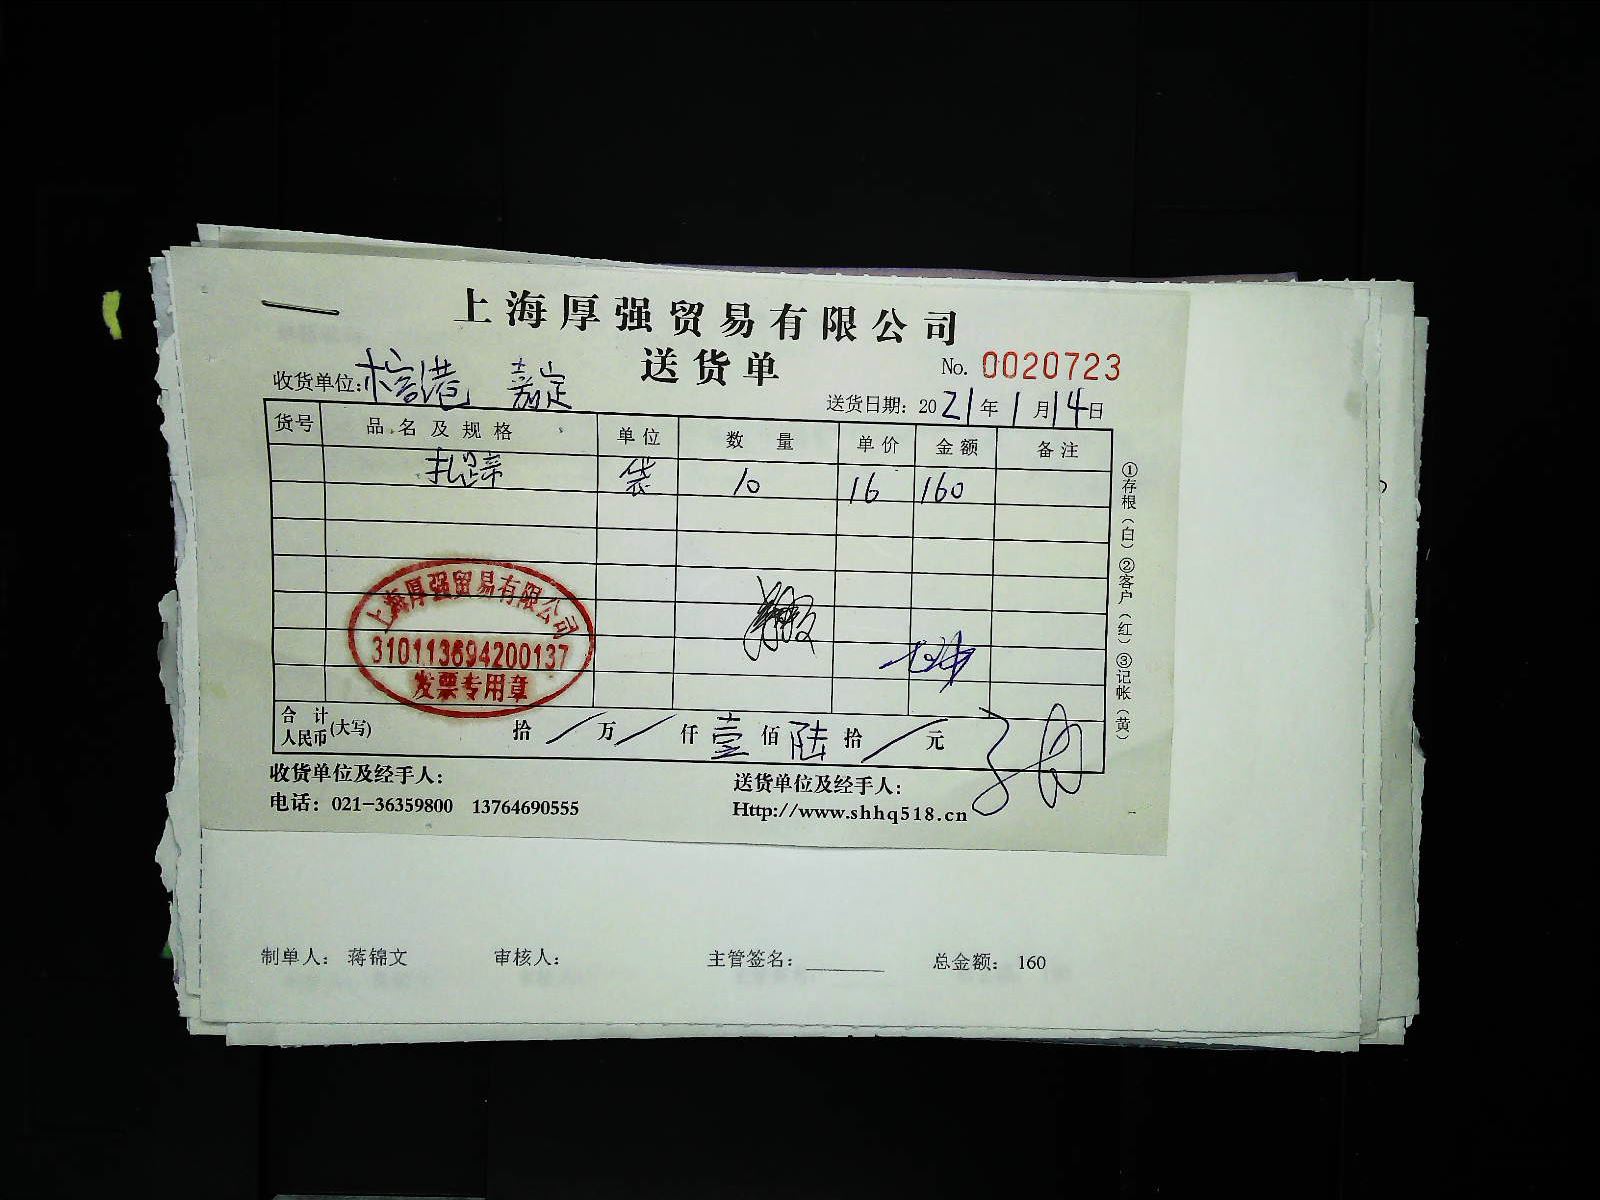 上海厚强贸易有限公司
送货单
No. 0020723
收货单位: 港 嘉定
送货日期: 2021年1月14日
货号 品名及规格 单位 数量 单价 金额 备注
扎蹄 袋 10 16 160
上海厚强贸易有限公司
310113694200137
发票专用章
合计人民币(大写) 拾 / 万 / 仟 壹 佰 陆 拾 / 元
①存根(白)②客户(红)③记帐(黄)
收货单位及经手人: 送货单位及经手人:
电话: 021-36359800 13764690555 Http://www.shhq518.cn
制单人: 蒋锦文 审核人: 主管签名: ________ 总金额: 160